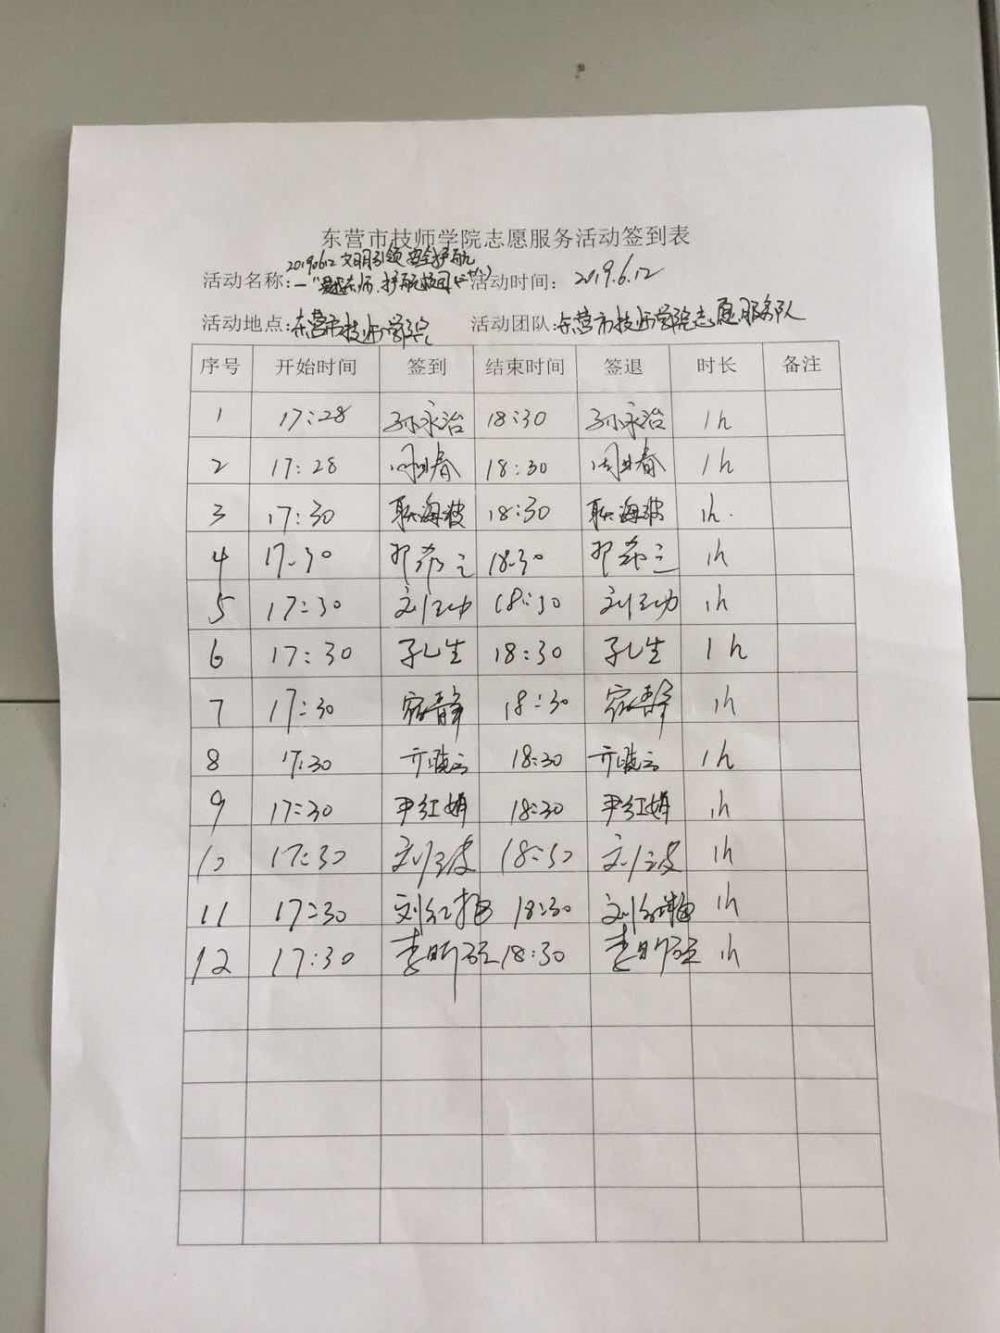 东营市技师学院志愿服务活动签到表
活动名称: 20190612 文明引领 安全护航 活动时间: 2019.6.12
活动地点: 东营市技师学院 活动团队: 东营市技师学院志愿服务队
序号 开始时间 签到 结束时间 签退 时长 备注
1 17:28 孙永治 18:30 孙永治 1h
2 17:28 18:30 1h
3 17:30 耿海波 18:30 耿海波 1h.
4 17:30 18:30 1h
5 17:30 18:30 1h
6 17:30 孔生 18:30 孔生 1h
7 17:30 18:30 1h
8 17:30 18:30 1h
9 17:30 尹红娟 18:30 尹红娟 1h
10 17:30 18:30 1h
11 17:30 刘红梅 18:30 刘红梅 1h
12 17:30 18:30 1h